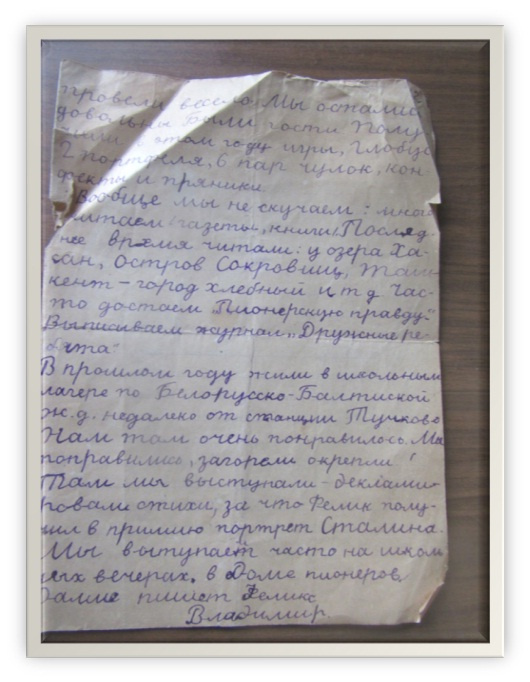 провели весело. Мы остались
довольны. Были гости. Полу-
чили в этом году игры, глобус
2 портфеля, 6 пар чулок, кон
фекты и пряники
Вообще мы не скучаем: много
читаем (газеты, книги). Послед-
нее время читали: у озера Ха-
сан, Остров Сокровищ, Таш-
кент – город хлебный и т д Час-
то достаем „Пионерскую правду"
Выписываем журнал „Дружные ре-
бята"
В прошлом году жили в школьным
лагере по Белорусско-Балтийской
ж.д. недалеко от станции Тучково
Нам там очень понравилось. Мы
поправились, загорели окрепли!
Там мы выступали – деклами-
ровали стихи, за что Релик полу-
чил в примию портрет Сталина.
Мы выступает часто на школь
ных вечерах, в Доме пионеров
Далше пишет Релик
Владимир.